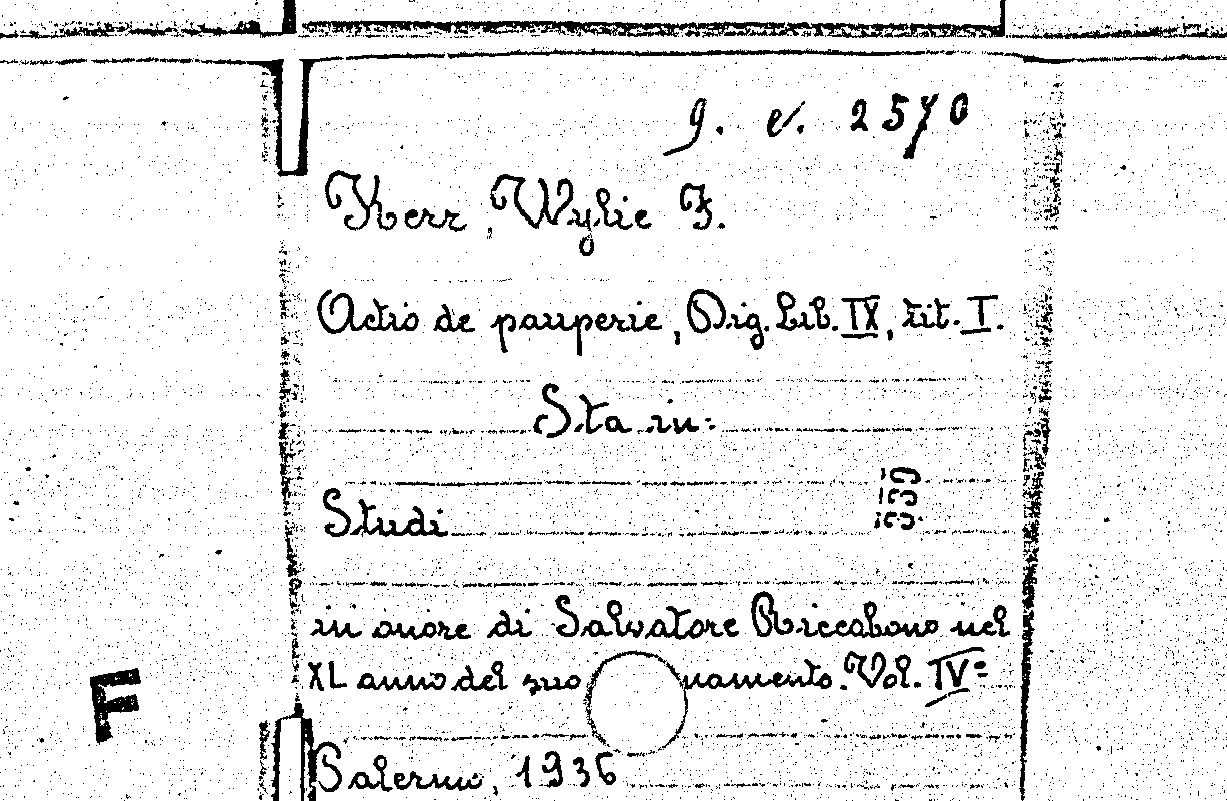 g. e. 2570
Kerr, Wylie F.
Actio de pauperie, Dig. Lib. IX, tit. I.
Sta in:
Studi
in onore di Salvatore Riccobono nel
XL anno del suo namento. Vol. IV=
Salerno, 1936
F